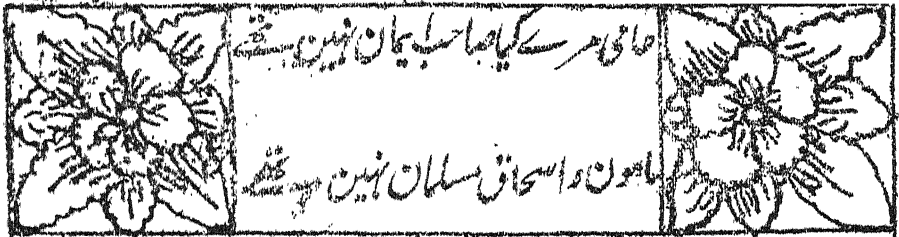 حامی مرے کیا صاحب ایمان نہین تھے
مامون و اسحاق مسلمان نہین تھے